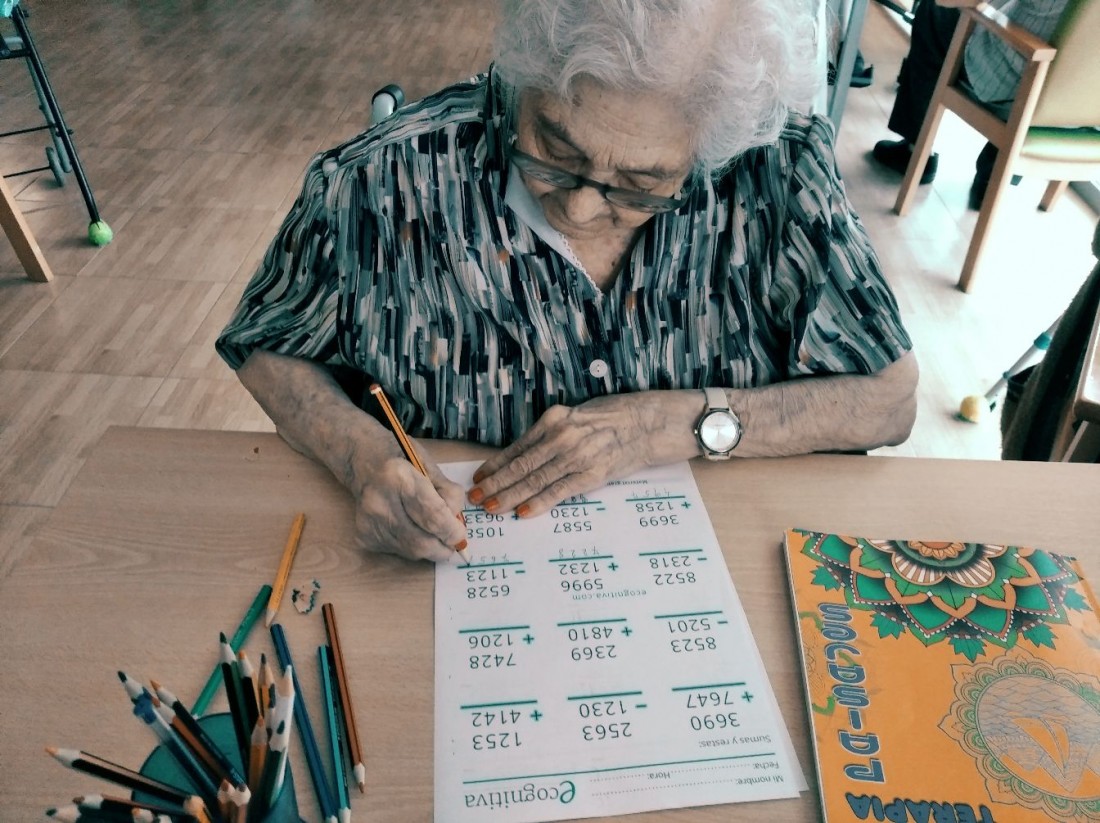 ecognitiva
Mi nombre:
Fecha: Hora:
Sumas y restas:
3690 2563 1253
+ 7647 - 1230 + 4142
8523 2369 7428
- 5201 + 4810 + 1206
ecognitiva.com
8522 5996 6528
- 2318 + 1232 - 1123
7228
3699 5587 1058
+ 1258 - 1230 + 9633
4957
TERAPIA